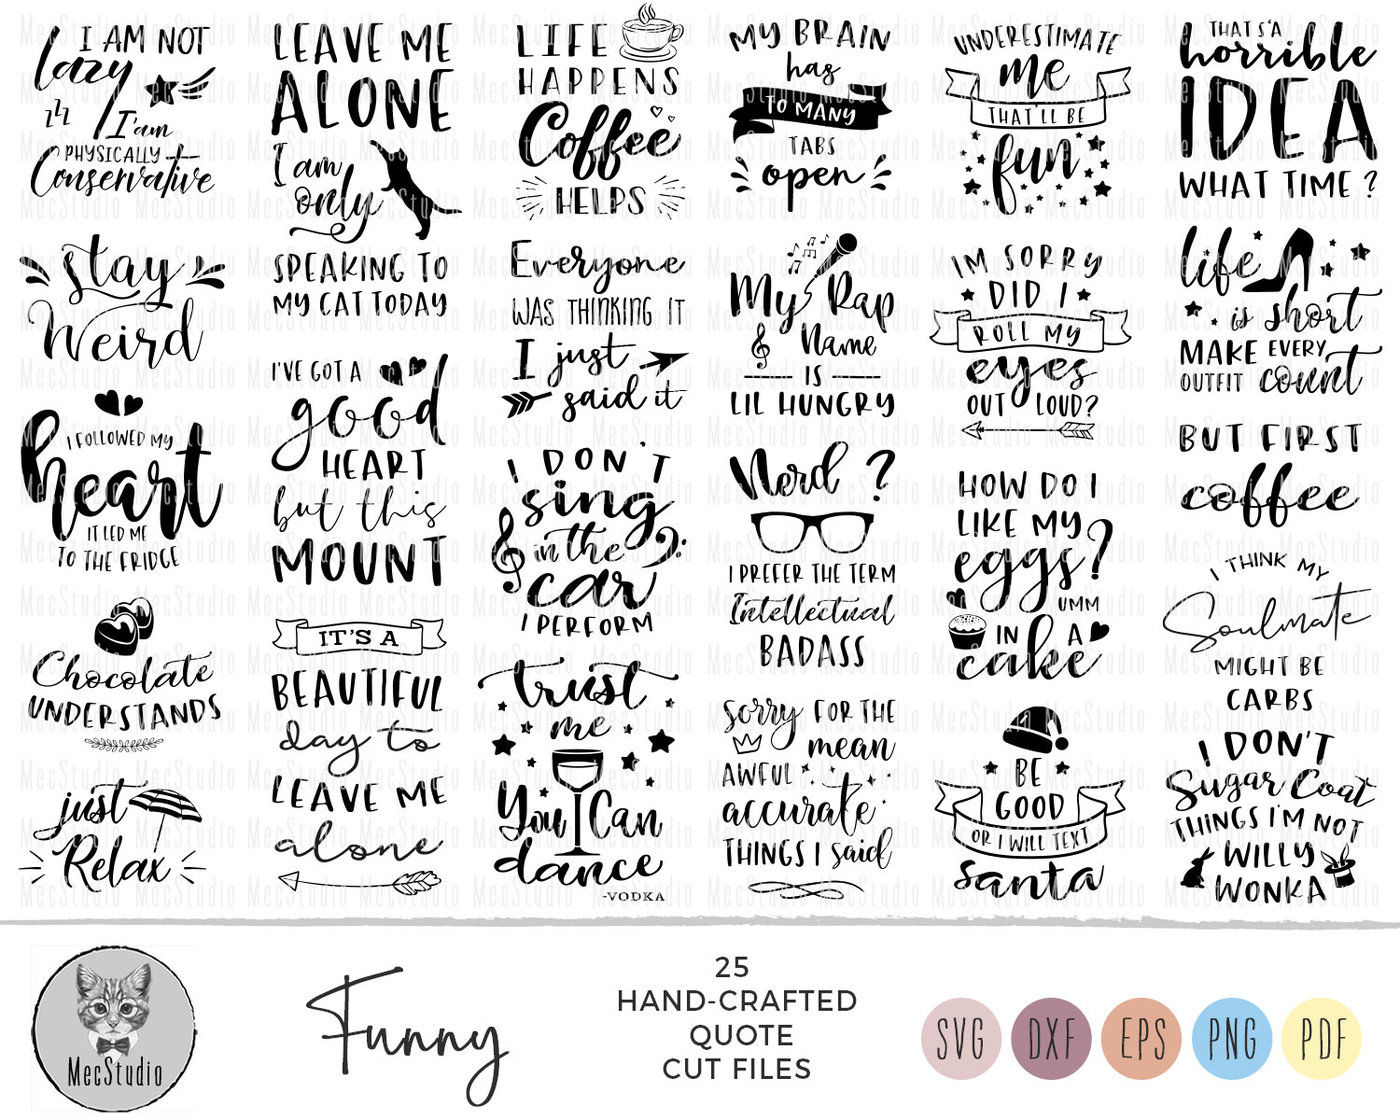 I AM NOT
lazy
zzz
I'am
PHYSICALLY
Conservative
stay
Weird
I FOLLOWED MY
heart
IT LED ME
TO THE FRIDGE
Chocolate
UNDERSTANDS
just
Relax
LEAVE ME
ALONE
I am
only
SPEAKING TO
MY CAT TODAY
I'VE GOT A
good
HEART
but this
MOUNT
IT'S A
BEAUTIFUL
day to
LEAVE ME
alone
LIFE
HAPPENS
Coffee
HELPS
Everyone
WAS THINKING IT
I just
said it
I DON'T
sing
in the
car
I PERFORM
trust
me
You Can
dance
-VODKA
MY BRAIN
has
TO MANY
TABS
open
My Rap
Name
IS
LIL HUNGRY
Nerd ?
I PREFER THE TERM
Intellectual
BADASS
sorry FOR THE
mean
AWFUL
accurate
THINGS I said
UNDERESTIMATE
me
THAT'LL BE
fun
I'M SORRY
DID I
ROLL MY
eyes
OUT LOUD?
HOW DO I
LIKE MY
eggs?
UMM
IN A
cake
BE
GOOD
OR I WILL TEXT
santa
THAT'S A
horrible
IDEA
WHAT TIME ?
life
is short
MAKE EVERY
OUTFIT count
BUT FIRST
coffee
I THINK MY
Soulmate
MIGHT BE
CARBS
I DON'T
Sugar Coat
THINGS I'M NOT
WILLY
WONKA
MecStudio
Funny
25
HAND-CRAFTED
QUOTE
CUT FILES
SVG DXF EPS PNG PDF